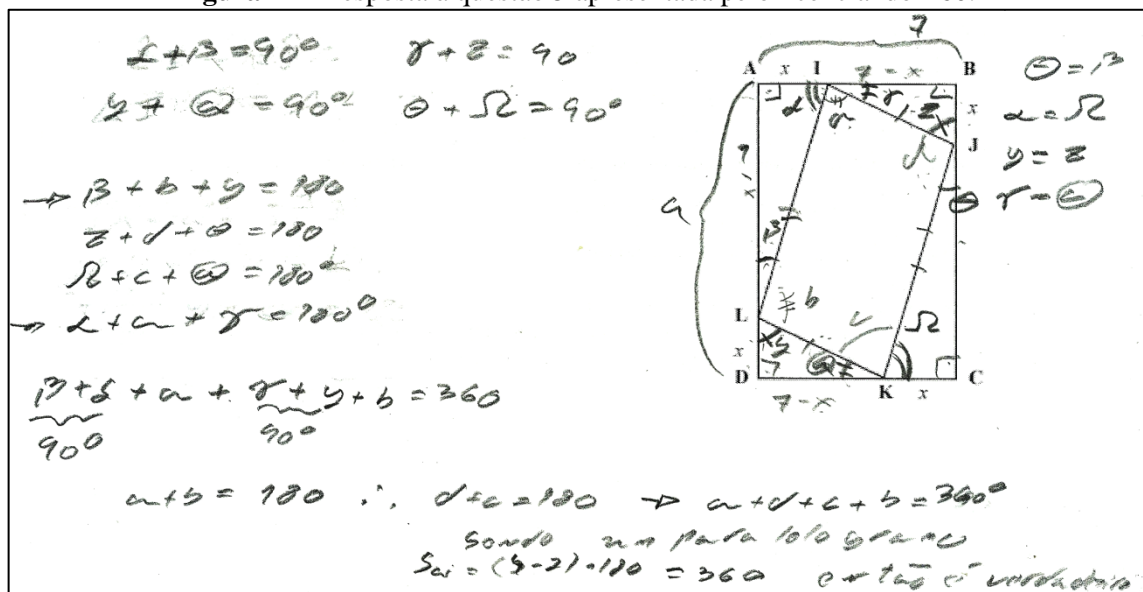 α + β = 90° γ + z = 90
y + Θ = 90° θ + Ω = 90°
→ β + b + y = 180
z + d + θ = 180
Ω + c + Θ = 180°
→ α + a + γ = 180°
β + α + a + γ + y + b = 360
90° 90°
a + b = 180 ∴ d + c = 180 → a + d + c + b = 360°
Sendo um paralelogramo
Sai = (4-2)·180 = 360 então é verdadeiro
7
A x I 7 - x B
α a γ z x
d J
9
a
- x
β
θ
L b
c Ω
x y Θ
D K x C
7 - x
θ = β
α = Ω
y = z
γ = Θ